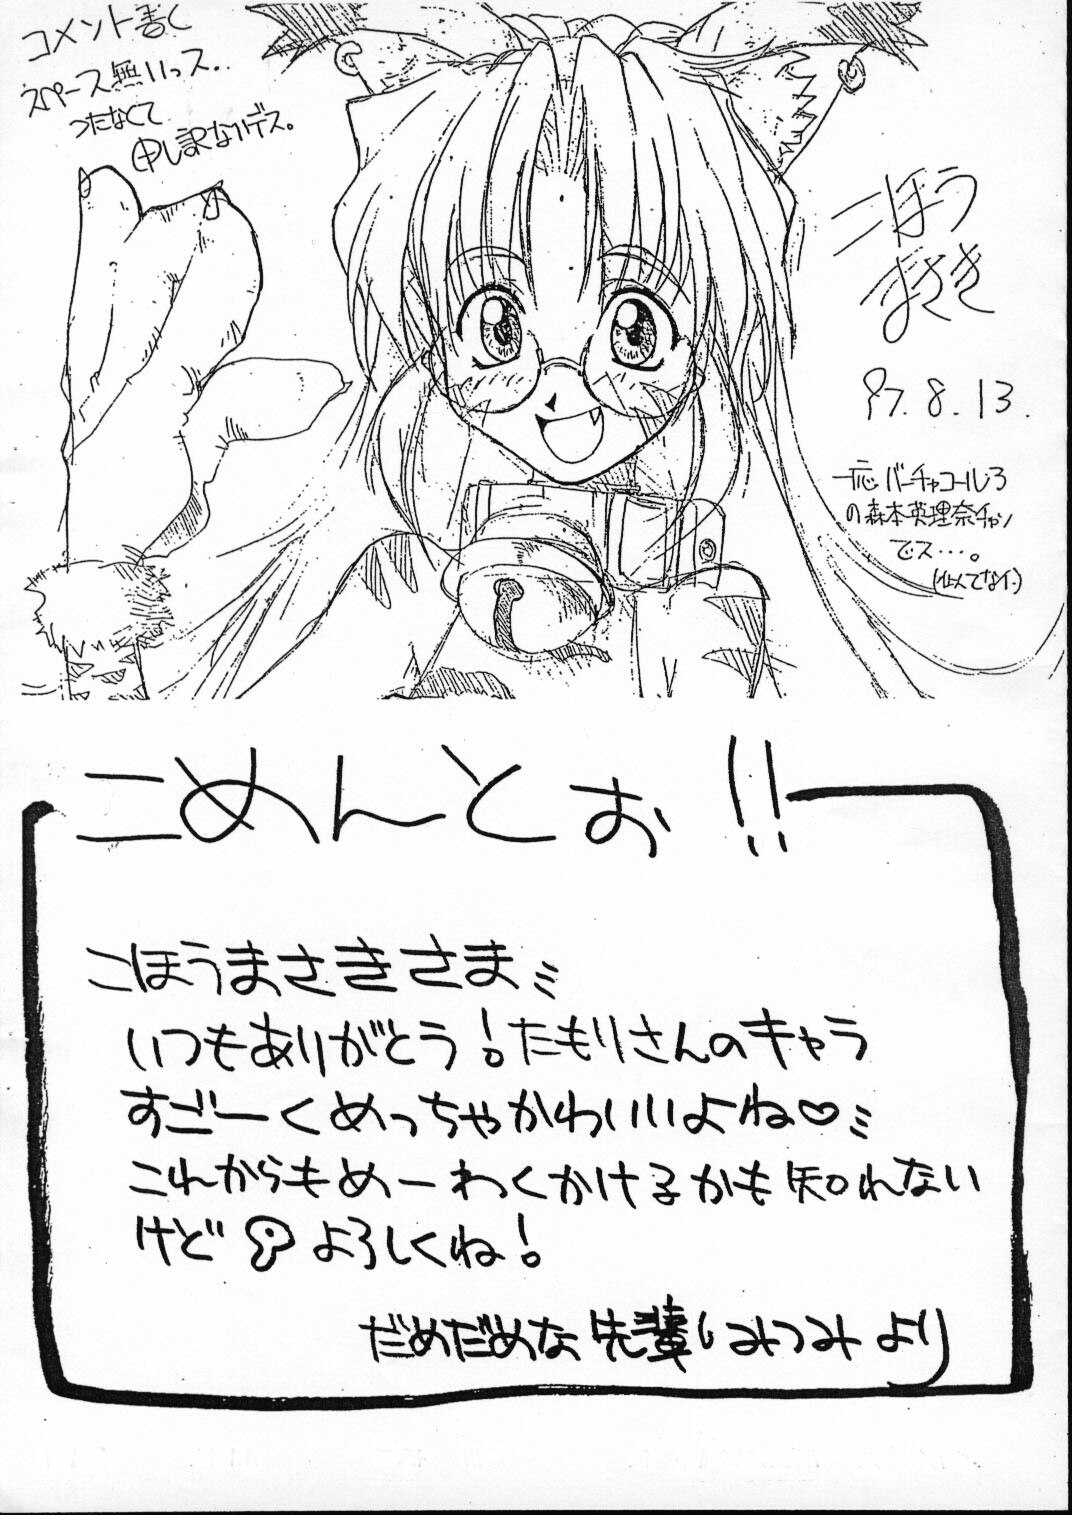 コメント書く
スペース無いっス..
つたなくて
申し訳ないデス。
こほう
まさき
97.8.13.
一応バーチャコール3
の森本英理奈チャン
でス…。
(似てなイ･)
こめんとぉ!!
こほうまさきさまミ
いつもありがとう!たもりさんのキャラ
すごーくめっちゃかわいいよね♡ミ
これからもめーわくかける子かも知れない
けど よろしくね!
だめだめな先輩しみつみより